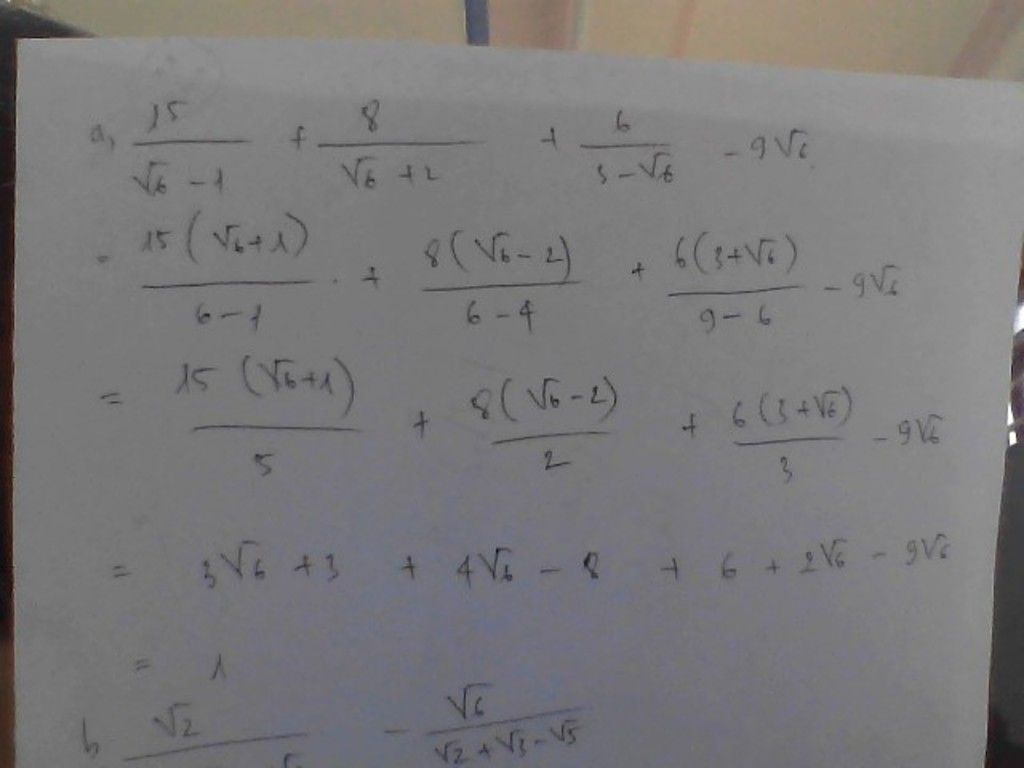 a, 15/(√6 - 1) + 8/(√6 + 2) + 6/(3 - √6) - 9√6
= 15(√6+1)/(6-1) + 8(√6-2)/(6-4) + 6(3+√6)/(9-6) - 9√6
= 15(√6+1)/5 + 8(√6-2)/2 + 6(3+√6)/3 - 9√6
= 3√6 + 3 + 4√6 - 8 + 6 + 2√6 - 9√6
= 1
b, √2 - √6/(√2 + √3 - √5)